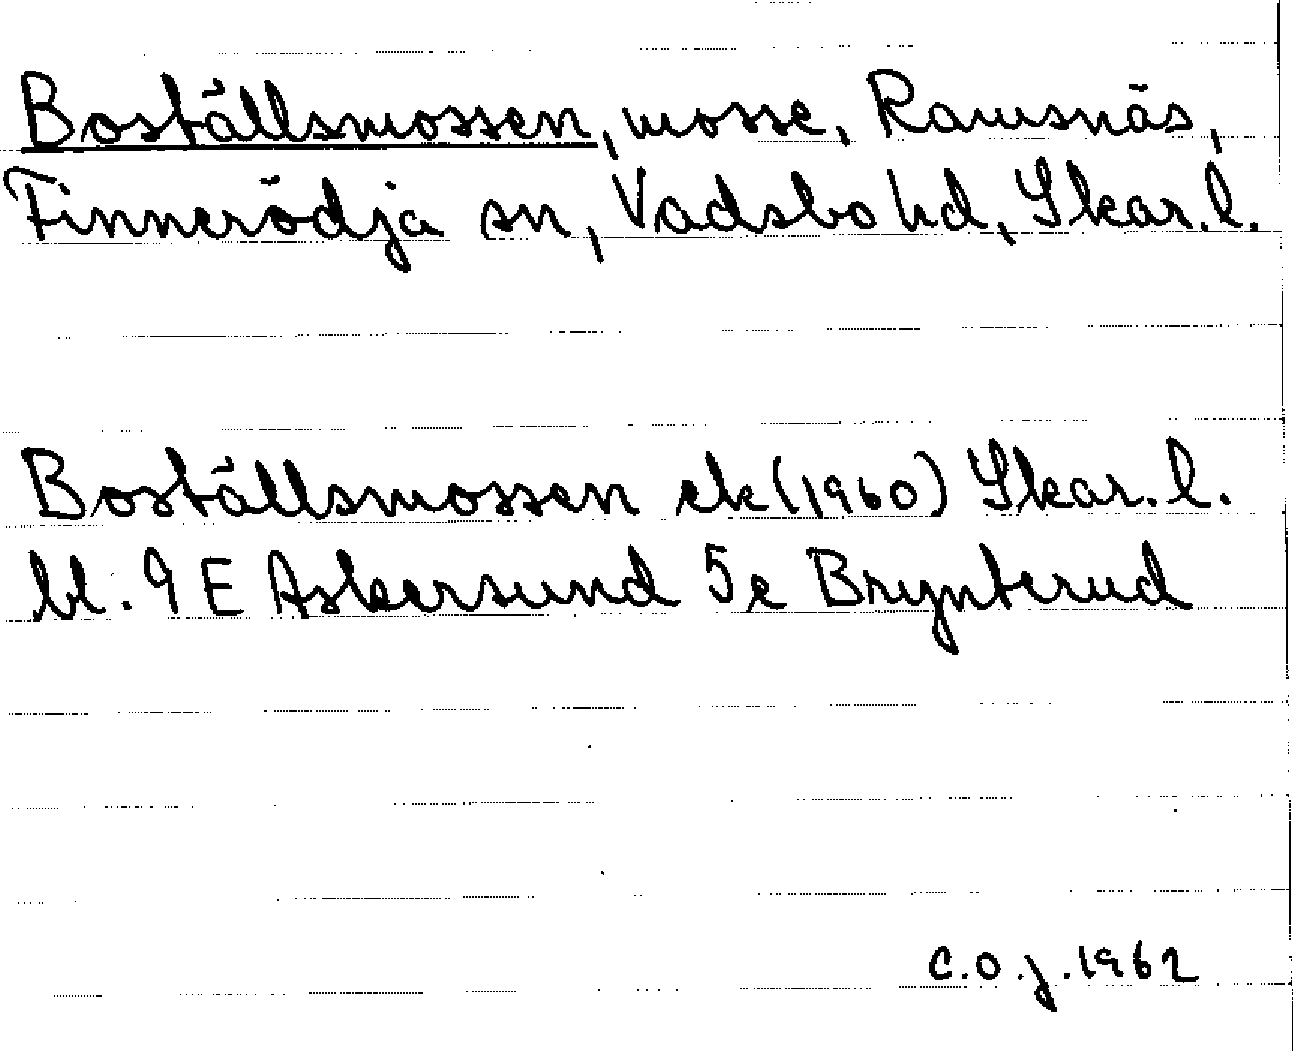 Boställsmossen, mosse, Ramsnäs,
Finnerödja sn, Vadsbo hd, Skar. l.
Boställsmossen ek (1960) Skar. l.
bl. 9 E Askersund 5e Brynterud
C.O.J. 1962